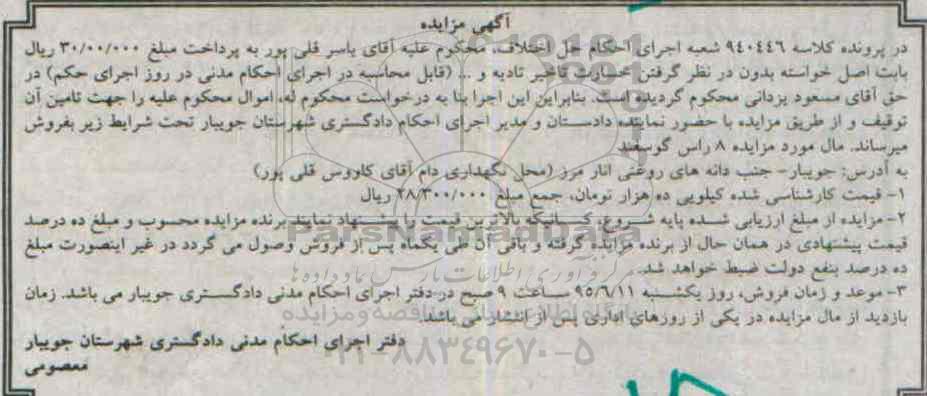 آگهی مزایده
در پرونده کلاسه ۹۴۰۴۴۶ شعبه اجرای احکام حل اختلاف، محکوم علیه آقای یاسر قلی پور به پرداخت مبلغ ۳۰/۰۰/۰۰۰ ریال
بابت اصل خواسته بدون در نظر گرفتن خسارت تاخیر تادیه و ... (قابل محاسبه در اجرای احکام مدنی در روز اجرای حکم) در
حق آقای مسعود یزدانی محکوم گردیده است. بنابراین این اجرا بنا به درخواست محکوم له، اموال محکوم علیه را جهت تامین آن
توقیف و از طریق مزایده با حضور نماینده دادستان و مدیر اجرای احکام دادگستری شهرستان جویبار تحت شرایط زیر بفروش
میرساند. مال مورد مزایده ۸ راس گوسفند
به آدرس: جویبار- جنب دانه های روغنی انار مرز (محل نگهداری دام آقای کاووس قلی پور)
۱- قیمت کارشناسی شده کیلویی ده هزار تومان، جمع مبلغ ۲۸/۳۰۰/۰۰۰ ریال
۲- مزایده از مبلغ ارزیابی شده پایه شروع، کسانیکه بالاترین قیمت را پیشنهاد نمایند برنده مزایده محسوب و مبلغ ده درصد
قیمت پیشنهادی در همان حال از برنده مزایده گرفته و باقی آن طی یکماه پس از فروش وصول می گردد در غیر اینصورت مبلغ
ده درصد بنفع دولت ضبط خواهد شد.
۳- موعد و زمان فروش، روز یکشنبه ۹۵/۶/۱۱ ساعت ۹ صبح در دفتر اجرای احکام مدنی دادگستری جویبار می باشد. زمان
بازدید از مال مزایده در یکی از روزهای اداری پس از انتشار می باشد.
دفتر اجرای احکام مدنی دادگستری شهرستان جویبار
معصومی
ParsNamadData
مرکز فرآوری اطلاعات پارس نماد داده ها
۰۲۱-۸۸۳۴۹۶۷۰-۵